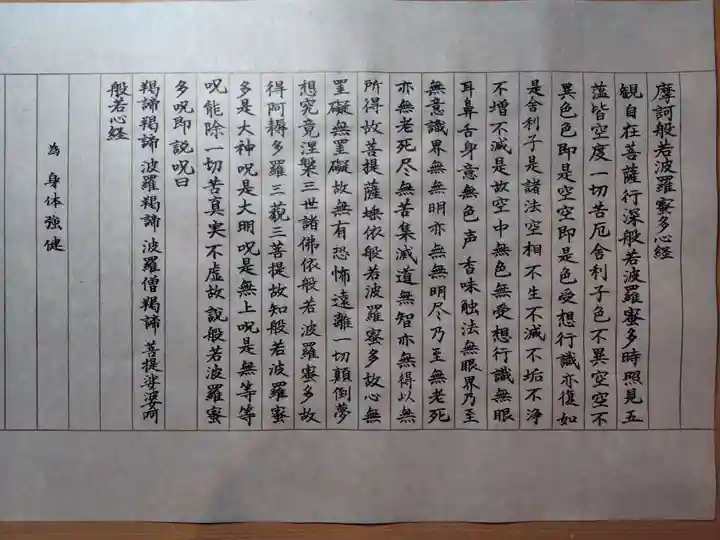 摩訶般若波羅蜜多心経
観自在菩薩行深般若波羅蜜多時照見五
蘊皆空度一切苦厄舎利子色不異空空不
異色色即是空空即是色受想行識亦復如
是舎利子是諸法空相不生不滅不垢不浄
不増不減是故空中無色無受想行識無眼
耳鼻舌身意無色声香味触法無眼界乃至
無意識界無無明亦無無明尽乃至無老死
亦無老死尽無苦集滅道無智亦無得以無
所得故菩提薩埵依般若波羅蜜多故心無
罣礙無罣礙故無有恐怖遠離一切顛倒夢
想究竟涅槃三世諸佛依般若波羅蜜多故
得阿耨多羅三藐三菩提故知般若波羅蜜
多是大神呪是大明呪是無上呪是無等等
呪能除一切苦真実不虚故説般若波羅蜜
多呪即説呪曰
羯諦羯諦波羅羯諦波羅僧羯諦菩提娑婆呵
般若心経
為身体強健